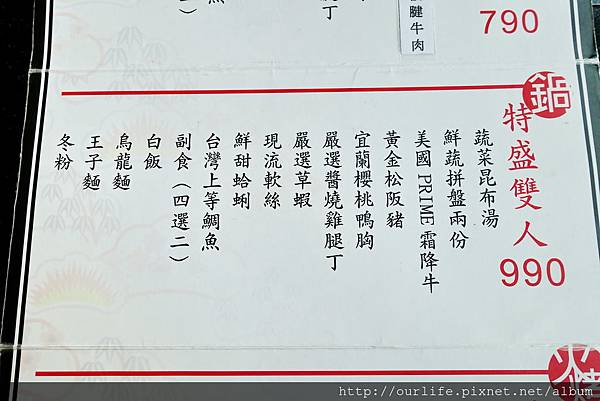 790
腱牛肉
鍋
特盛雙人
990
蔬菜昆布湯
鮮蔬拼盤兩份
美國 PRIME 霜降牛
黃金松阪豬
宜蘭櫻桃鴨胸
嚴選醬燒雞腿丁
嚴選草蝦
現流軟絲
鮮甜蛤蜊
台灣上等鯛魚
副食（四選二）
白飯
烏龍麵
王子麵
冬粉
http://ourlife.pixnet.net/album